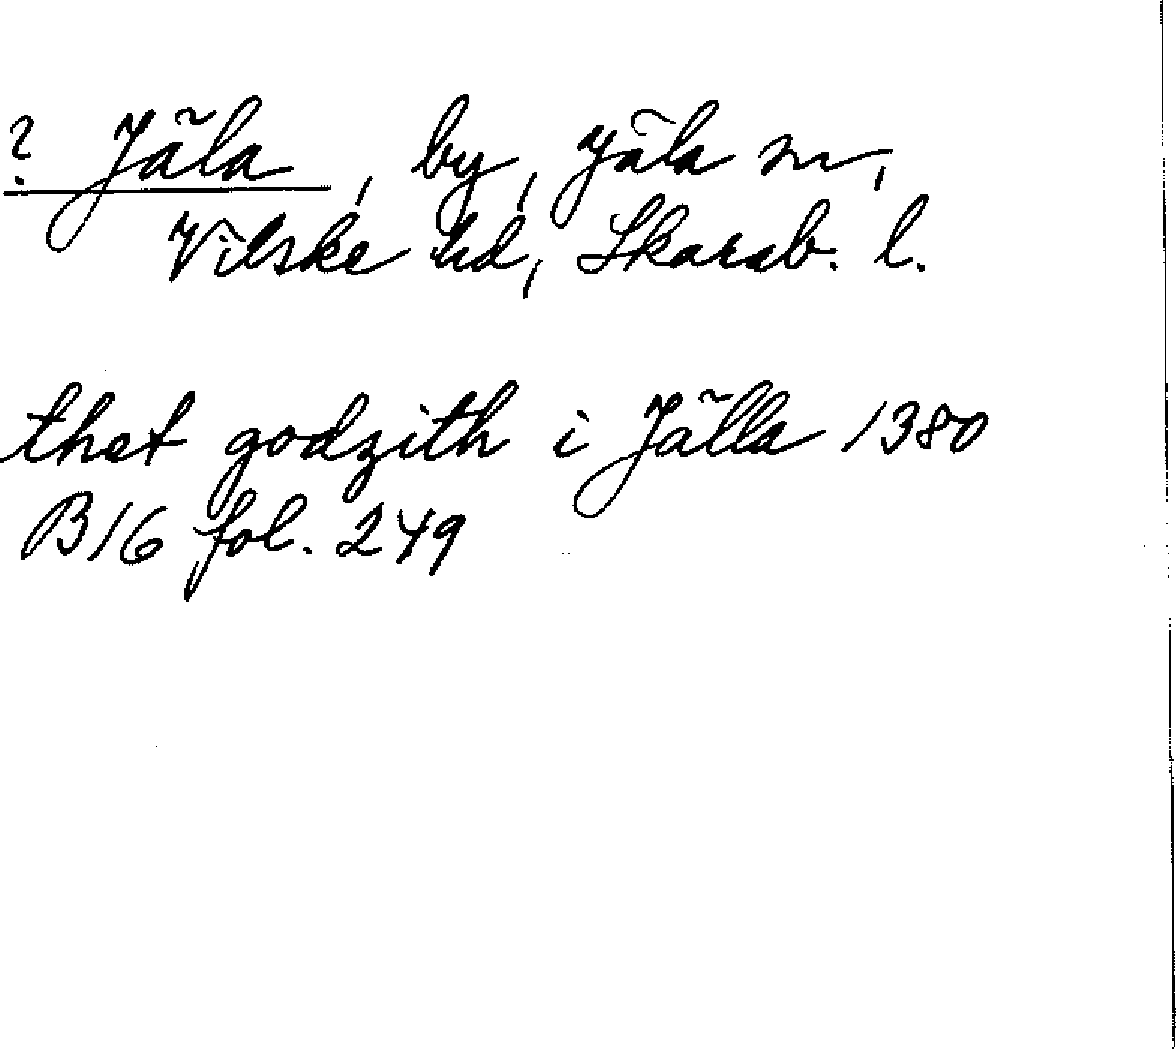 ? Jäla, by, Jäla sn,
Vilske hd, Skarab. l.
thet godzith i Jälla 1380
B16 fol. 249